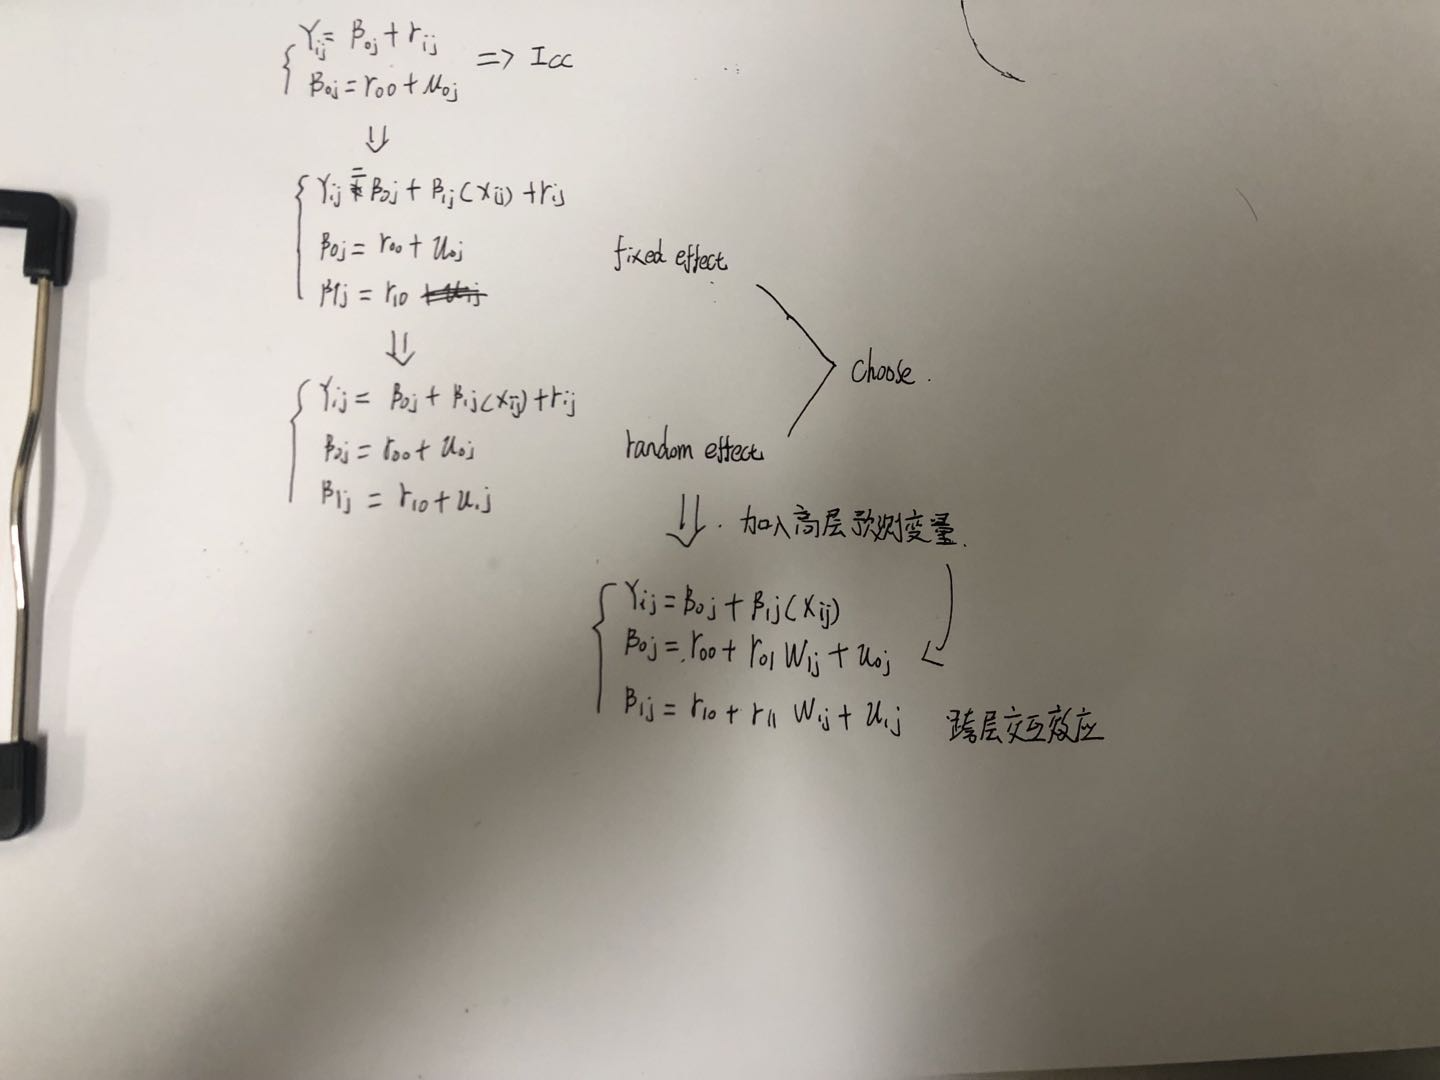 Yij = β0j + rij
β0j = r00 + u0j
=> Icc
⇓
Yij = β0j + β1j(xij) + rij
β0j = r00 + u0j
β1j = r10
fixed effect
⇓
Yij = β0j + β1j(xij) + rij
β0j = r00 + u0j
β1j = r10 + u1j
random effect
choose.
⇓ 加入高层预测变量.
Yij = β0j + β1j(xij)
β0j = r00 + r01 W1j + u0j
β1j = r10 + r11 W1j + u1j 跨层交互效应